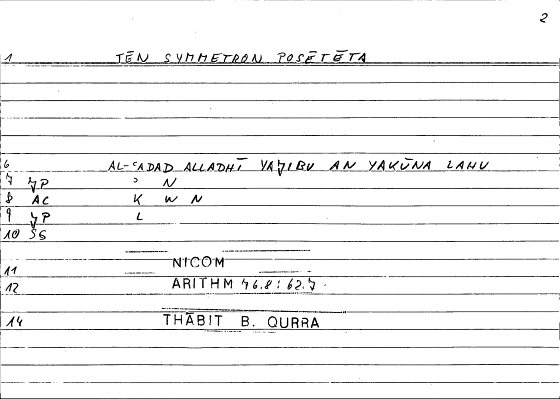 2
1 TĒN SYMMETRON POSĒTĒTA
6 AL-ʿADAD ALLADHĪ YAJIBU AN YAKŪNA LAHU
7 JP ʾ N
8 AC K W N
9 JP L
10 ŠG
11 NICOM
12 ARITHM 46.8 : 62.7
14 THĀBIT B. QURRA